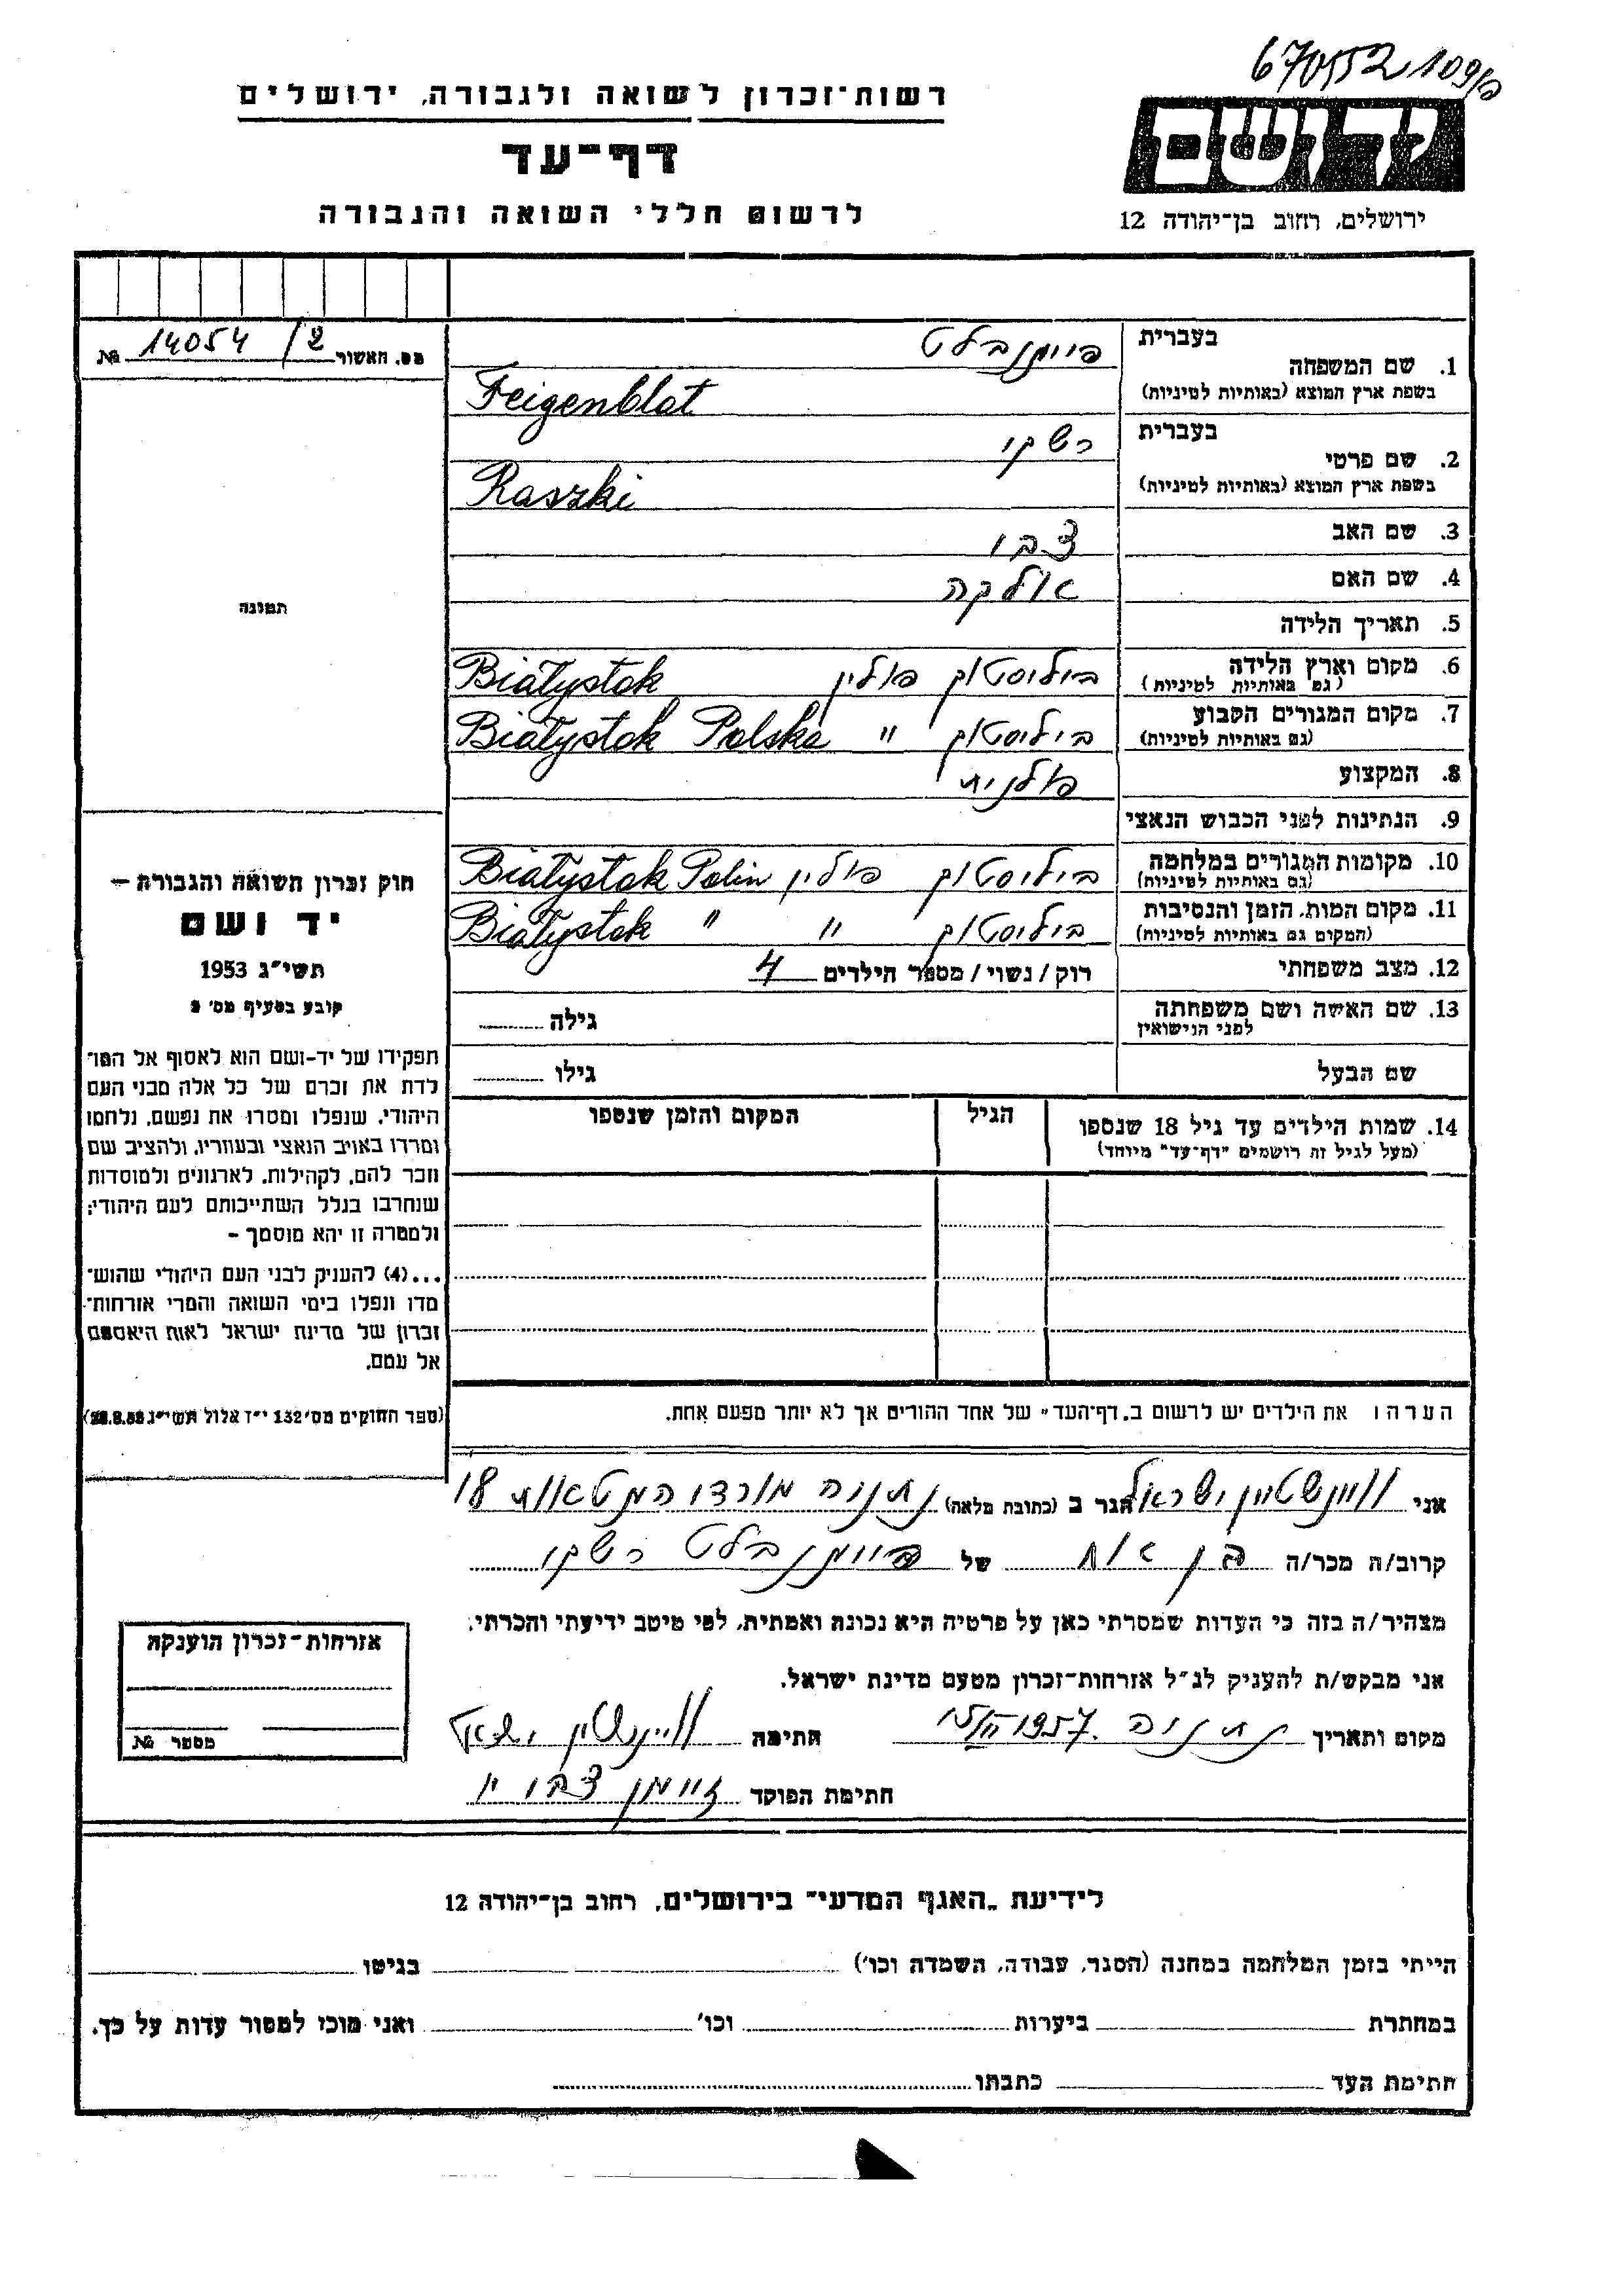 670552 109/כ
רשות־זכרון לשואה ולגבורה, ירושלים
יד ושם
דף־עד
לרשום חללי השואה והגבורה
ירושלים, רחוב בן־יהודה 12
מס. האשור 14054/2 №
תמונה
חוק זכרון השואה והגבורה —
יד ושם
תשי״ג 1953
קובע בסעיף מס׳ 2
תפקידו של יד-ושם הוא לאסוף אל המו־
לדת את זכרם של כל אלה מבני העם
היהודי, שנפלו ומסרו את נפשם, נלחמו
ומרדו באויב הנאצי ובעוזריו, ולהציב שם
וזכר להם, לקהילות, לארגונים ולמוסדות
שנחרבו בגלל השתייכותם לעם היהודי;
ולמטרה זו יהא מוסמך —
...(4) להעניק לבני העם היהודי שהוש־
מדו ונפלו בימי השואה והמרי אזרחות־
זכרון של מדינת ישראל לאות היאספם
אל עמם.
(ספר החוקים מס׳ 132 י״ז אלול תשי״ג 28.8.53)
1. שם המשפחה בעברית פייגנבלט
בשפת ארץ המוצא (באותיות לטיניות) Feigenblat
2. שם פרטי בעברית רשקי
בשפת ארץ המוצא (באותיות לטיניות) Raszki
3. שם האב צבי
4. שם האם אלקה
5. תאריך הלידה
6. מקום וארץ הלידה (גם באותיות לטיניות) ביליסטוק פולין Białystok
7. מקום המגורים הקבוע (גם באותיות לטיניות) ביליסטוק " Białystok Polska
8. המקצוע פולנית
9. הנתינות לפני הכבוש הנאצי
10. מקומות המגורים במלחמה (גם באותיות לטיניות) ביליסטוק פולין Białystok Polin
11. מקום המות, הזמן והנסיבות (המקום גם באותיות לטיניות) ביליסטוק " " Białystok
12. מצב משפחתי רוק/נשוי/מספר הילדים 4
13. שם האשה ושם משפחתה לפני הנישואין גילה
שם הבעל גילו
14. שמות הילדים עד גיל 18 שנספו הגיל המקום והזמן שנספו
(מעל לגיל זה רושמים "דף־עד" מיוחד)
הערה: את הילדים יש לרשום ב„דף־העד" של אחד ההורים אך לא יותר מפעם אחת.
אני ויינשטיין ישראל הגר ב (כתובת מלאה) נתניה מורדי הגטאות 18
קרוב/ה מכר/ה בן אח של פייגנבלט רשקי
מצהיר/ה בזה כי העדות שמסרתי כאן על פרטיה היא נכונה ואמתית, לפי מיטב ידיעתי והכרתי.
אני מבקש/ת להעניק לנ״ל אזרחות־זכרון מטעם מדינת ישראל.
מקום ותאריך נתניה 1957 חתימה ויינשטיין ישראל
חתימת הפוקד זיימן צבי
אזרחות־זכרון הוענקה
מספר №
לידיעת „האגף המדעי" בירושלים, רחוב בן־יהודה 12
הייתי בזמן המלחמה במחנה (הסגר, עבודה, השמדה וכו׳) בגיטו
במחתרת ביערות וכו׳ ואני מוכן למסור עדות על כך.
חתימת העד כתבתו